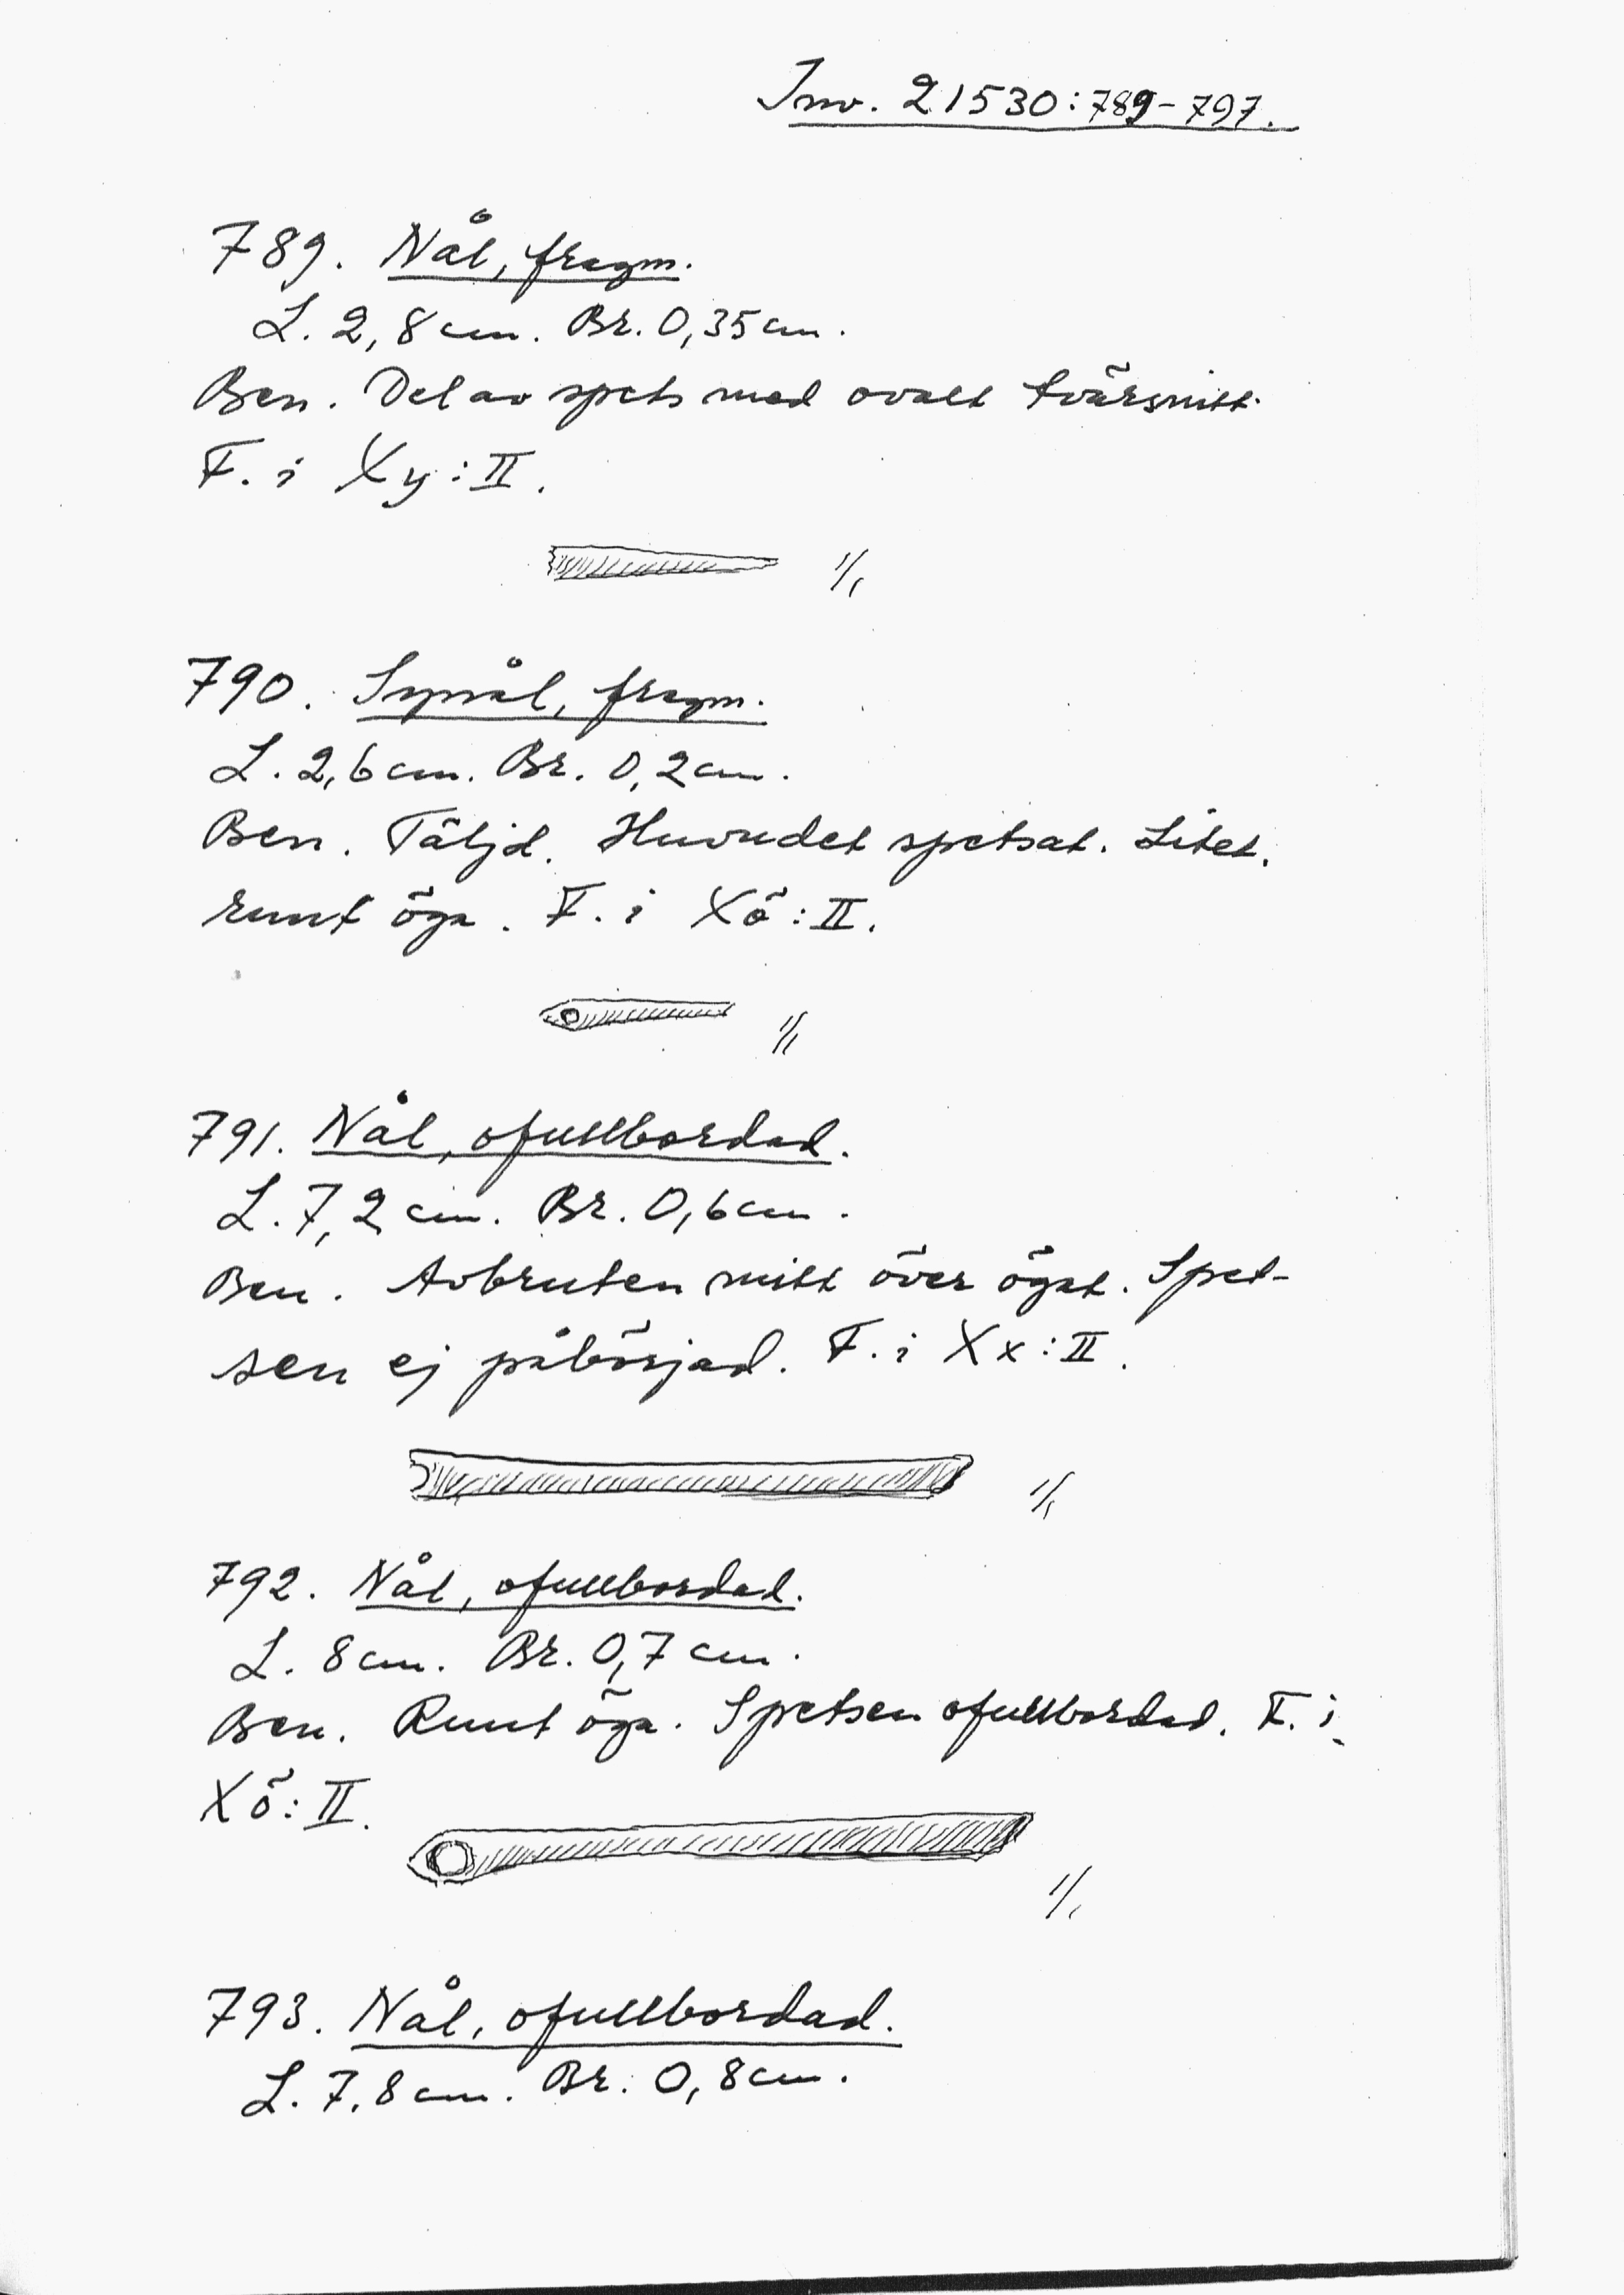 Inv. 21530:789-797.
789. Nål, fragm.
L. 2,8 cm. Br. 0,35 cm.
Ben. Del av spets med ovalt tvärsnitt.
F. i Xy:II.
1/1
790. Synål, fragm.
L. 2,6 cm. Br. 0,2 cm.
Ben. Täljd. Huvudet spetsat. Litet,
runt öga. F. i Xö:II.
1/1
791. Nål, ofullbordad.
L. 7,2 cm. Br. 0,6 cm.
Ben. Avbruten mitt över ögat. Spet-
sen ej påbörjad. F. i Xx:II.
1/1
792. Nål, ofullbordad.
L. 8 cm. Br. 0,7 cm.
Ben. Runt öga. Spetsen ofullbordad. F. i
Xö:II.
1/1
793. Nål, ofullbordad.
L. 7,8 cm. Br. 0,8 cm.